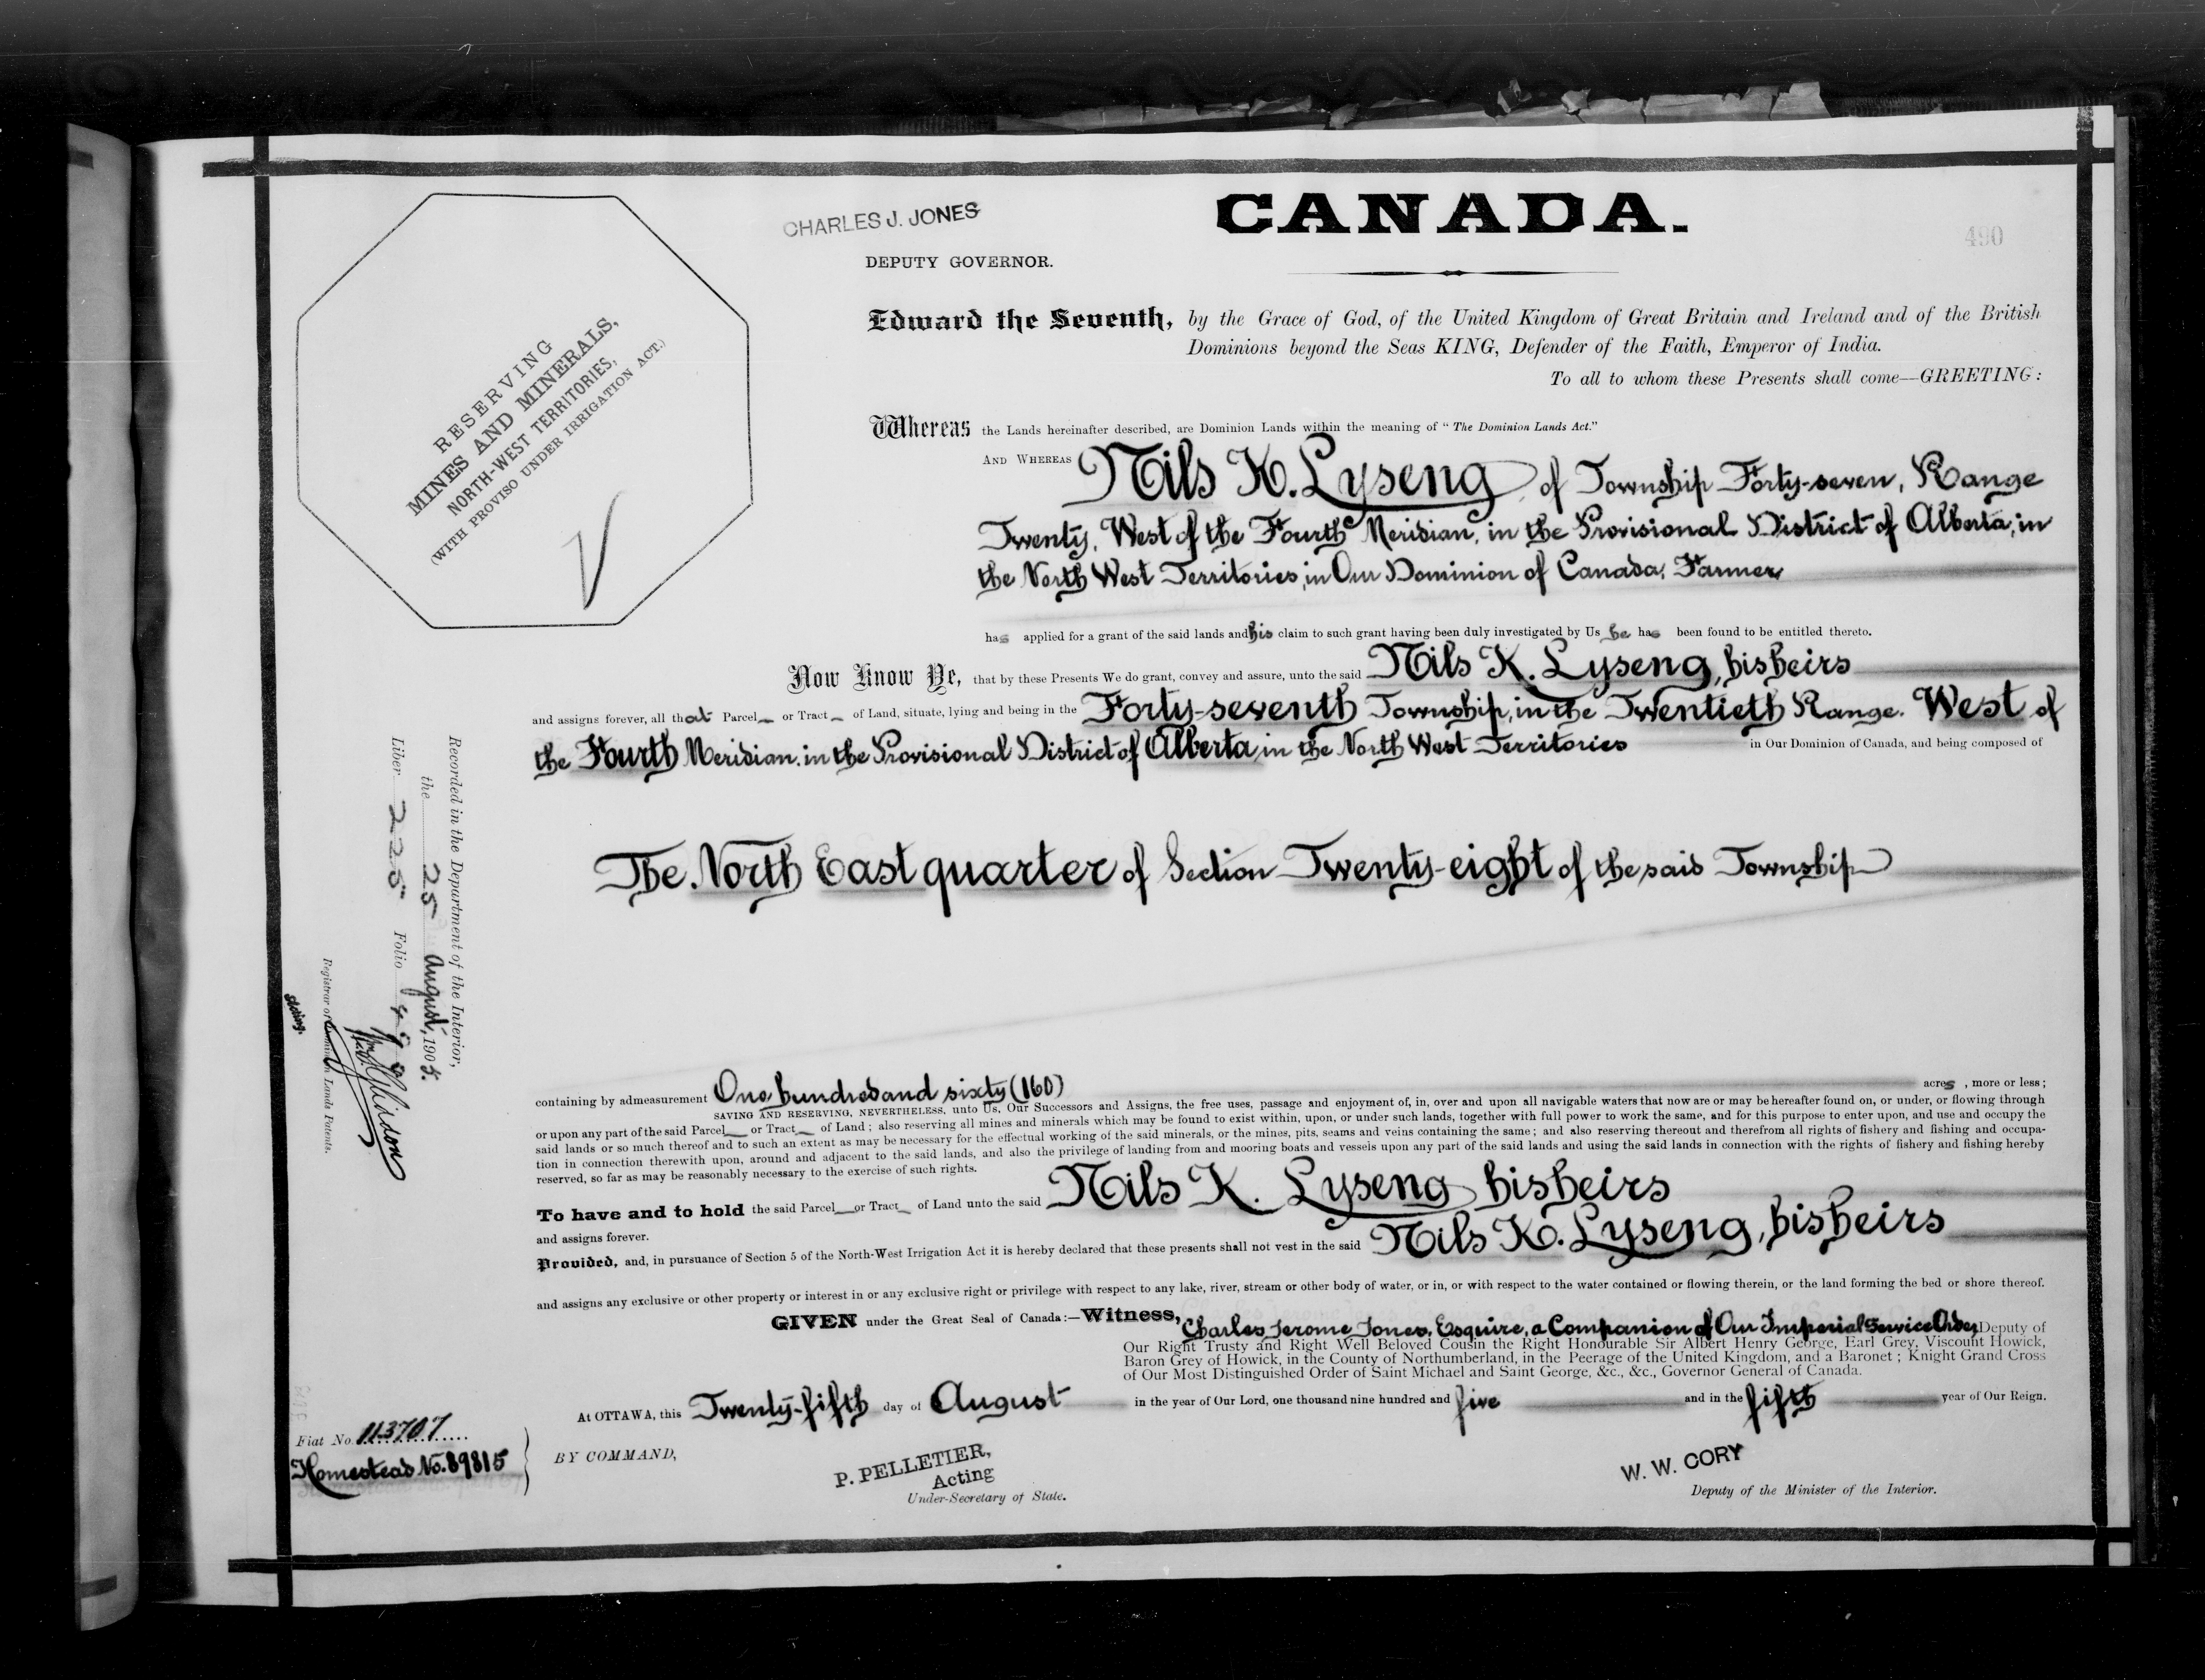 CHARLES J. JONES
CANADA.
490
DEPUTY GOVERNOR.
RESERVING
MINES AND MINERALS,
NORTH-WEST TERRITORIES,
(WITH PROVISO UNDER IRRIGATION ACT.)
Edward the Seventh, by the Grace of God, of the United Kingdom of Great Britain and Ireland and of the British
Dominions beyond the Seas KING, Defender of the Faith, Emperor of India.
To all to whom these Presents shall come—GREETING:
Whereas the Lands hereinafter described, are Dominion Lands within the meaning of "The Dominion Lands Act."
AND WHEREAS Nils K. Lyseng of Township Forty-seven, Range
Twenty, West of the Fourth Meridian, in the Provisional District of Alberta, in
the North West Territories, in Our Dominion of Canada, Farmer
has applied for a grant of the said lands and his claim to such grant having been duly investigated by Us he has been found to be entitled thereto.
Now Know Ye, that by these Presents We do grant, convey and assure, unto the said Nils K. Lyseng, his heirs
and assigns forever, all that Parcel or Tract of Land, situate, lying and being in the Forty-seventh Township, in the Twentieth Range. West of
the Fourth Meridian, in the Provisional District of Alberta, in the North West Territories in Our Dominion of Canada, and being composed of
The North East quarter of Section Twenty-eight of the said Township
Recorded in the Department of the Interior,
the 25 August, 1905.
Liber 225 Folio 490
Registrar of Dominion Lands Patents.
containing by admeasurement One hundred and sixty (160) acres, more or less;
SAVING AND RESERVING, NEVERTHELESS, unto Us, Our Successors and Assigns, the free uses, passage and enjoyment of, in, over and upon all navigable waters that now are or may be hereafter found on, or under, or flowing through
or upon any part of the said Parcel or Tract of Land; also reserving all mines and minerals which may be found to exist within, upon, or under such lands, together with full power to work the same, and for this purpose to enter upon, and use and occupy the
said lands or so much thereof and to such an extent as may be necessary for the effectual working of the said minerals, or the mines, pits, seams and veins containing the same; and also reserving thereout and therefrom all rights of fishery and fishing and occupa-
tion in connection therewith upon, around and adjacent to the said lands, and also the privilege of landing from and mooring boats and vessels upon any part of the said lands and using the said lands in connection with the rights of fishery and fishing hereby
reserved, so far as may be reasonably necessary to the exercise of such rights.
To have and to hold the said Parcel or Tract of Land unto the said Nils K. Lyseng his heirs
and assigns forever.
Provided, and, in pursuance of Section 5 of the North-West Irrigation Act it is hereby declared that these presents shall not vest in the said Nils K. Lyseng, his heirs
and assigns any exclusive or other property or interest in or any exclusive right or privilege with respect to any lake, river, stream or other body of water, or in, or with respect to the water contained or flowing therein, or the land forming the bed or shore thereof.
GIVEN under the Great Seal of Canada:—Witness, Charles Jerome Jones, Esquire, a Companion of Our Imperial Service Order, Deputy of
Our Right Trusty and Right Well Beloved Cousin the Right Honourable Sir Albert Henry George, Earl Grey, Viscount Howick,
Baron Grey of Howick, in the County of Northumberland, in the Peerage of the United Kingdom, and a Baronet; Knight Grand Cross
of Our Most Distinguished Order of Saint Michael and Saint George, &c., &c., Governor General of Canada.
At OTTAWA, this Twenty-fifth day of August in the year of Our Lord, one thousand nine hundred and five and in the fifth year of Our Reign.
Fiat No. 113707
Homestead No. 89815
BY COMMAND,
P. PELLETIER,
Acting
Under-Secretary of State.
W. W. CORY
Deputy of the Minister of the Interior.